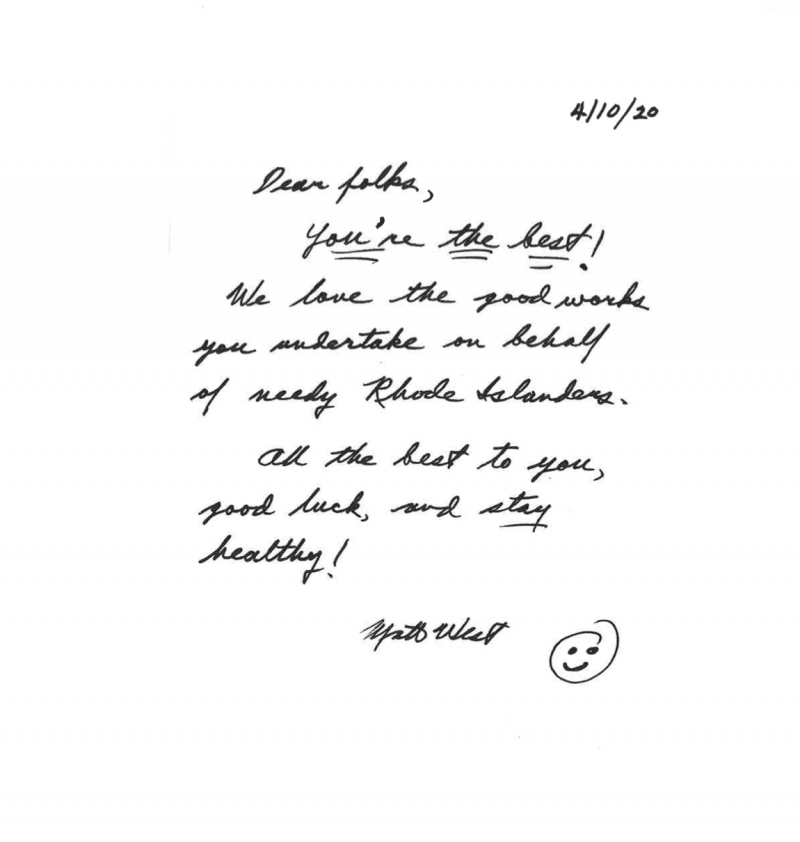 4/10/20
Dear folks,
You're the best!
We love the good works
you undertake on behalf
of needy Rhode Islanders.
All the best to you,
good luck, and stay
healthy!
Matt West